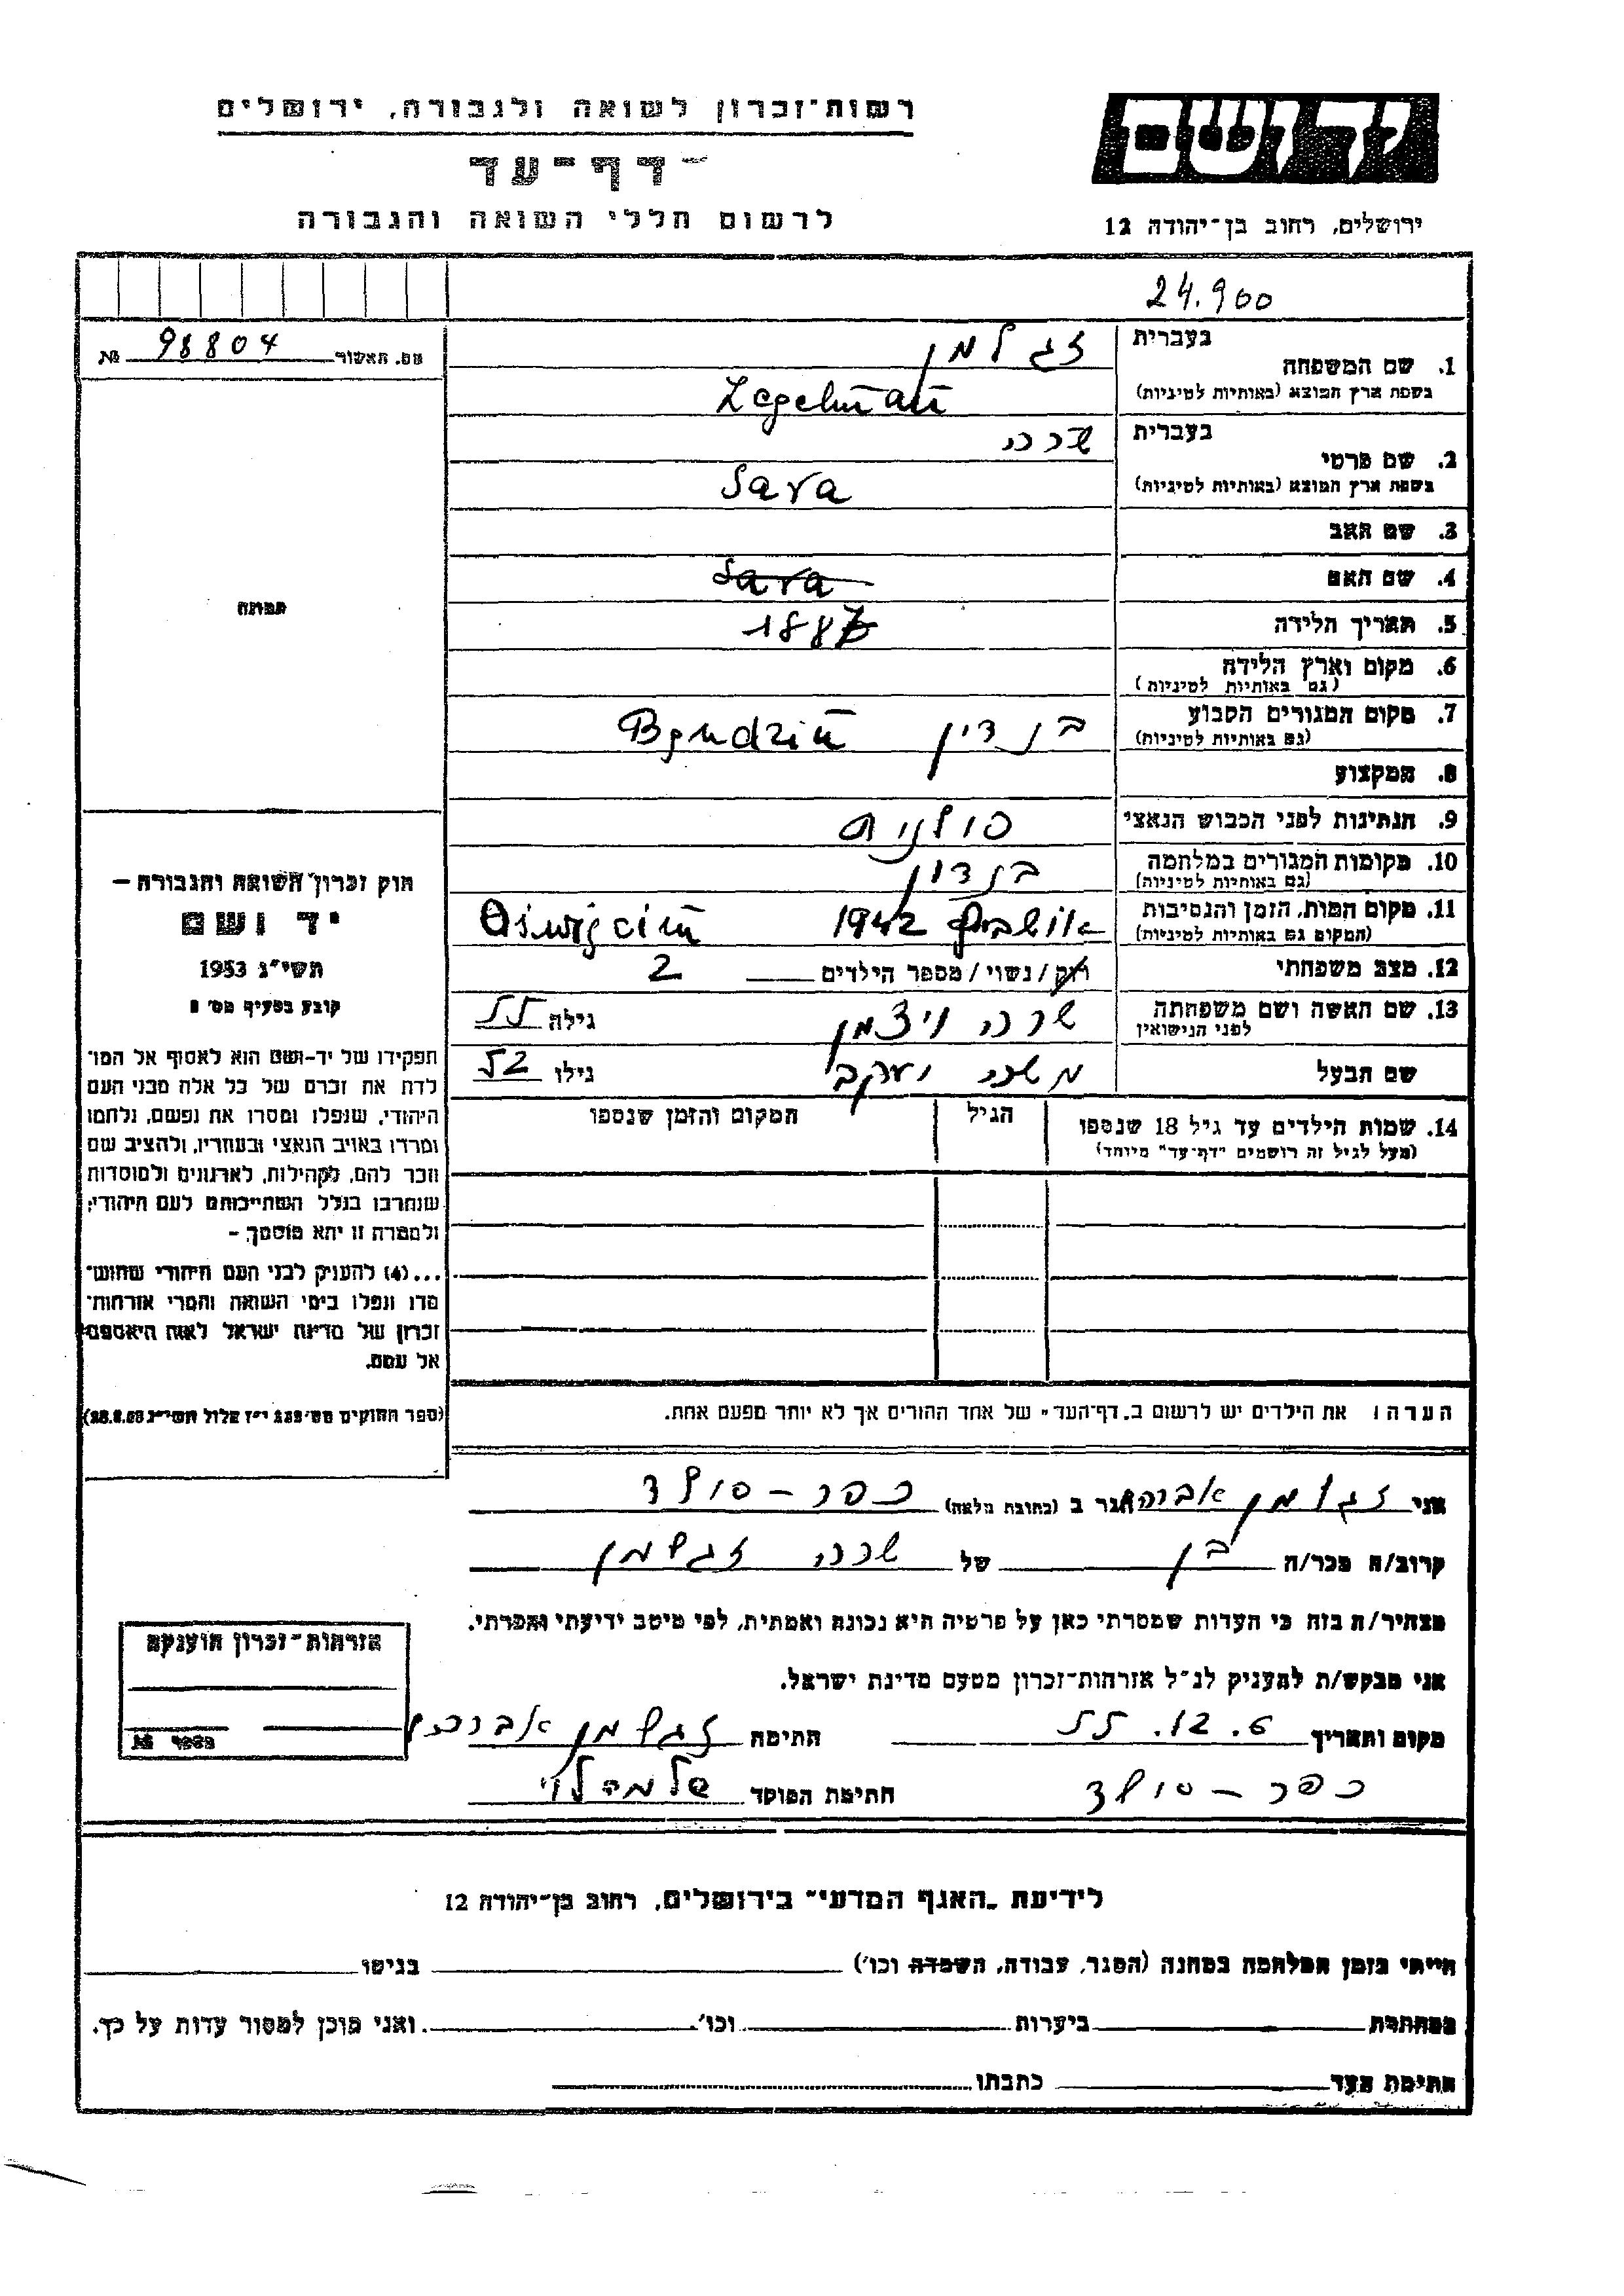 רשות־זכרון לשואה ולגבורה, ירושלים
יד ושם
דף־עד
לרשום חללי השואה והגבורה
ירושלים, רחוב בן־יהודה 12
24.900
מס. האשור 98804 №
1. שם המשפחה בעברית זגלמן
בשפת ארץ המוצא (באותיות לטיניות) Zegelman
2. שם פרטי בעברית שרה
בשפת ארץ המוצא (באותיות לטיניות) Sara
3. שם האב
4. שם האם Sara
5. תאריך הלידה 1887
6. מקום וארץ הלידה
(גם באותיות לטיניות)
7. מקום המגורים הקבוע בנדין Bendzin
(גם באותיות לטיניות)
8. המקצוע
9. הנתינות לפני הכבוש הנאצי פולנית
10. מקומות המגורים במלחמה בנדין
(גם באותיות לטיניות)
11. מקום המות, הזמן והנסיבות 1942 Oświęcim
(המקום גם באותיות לטיניות)
12. מצב משפחתי רווק / נשוי / מספר הילדים 2
13. שם האשה ושם משפחתה שרה ויצמן גילה 55
לפני הנישואין
שם הבעל משה יעקב גילו 52
14. שמות הילדים עד גיל 18 שנספו הגיל המקום והזמן שנספו
(מעל לגיל זה רושמים "דף־עד" מיוחד)
הערה: את הילדים יש לרשום ב„דף־העד" של אחד ההורים אך לא יותר מפעם אחת.
תמונה
חוק זכרון השואה והגבורה —
יד ושם
תשי"ג 1953
קובע בסעיף מס׳
תפקידו של יד־ושם הוא לאסוף אל המו־
לדת את זכרם של כל אלה מבני העם
היהודי, שנפלו ומסרו את נפשם, נלחמו
ומרדו באויב הנאצי ובעוזריו, ולהציב שם
וזכר להם, לקהילות, לארגונים ולמוסדות
שנחרבו בגלל השתייכותם לעם היהודי;
ולמטרה זו יהא מוסמך –
...(4) להעניק לבני העם היהודי שהוש־
מדו ונפלו בימי השואה והמרי אזרחות־
זכרון של מדינת ישראל לאות היאספם
אל עמם.
(ספר החוקים מס׳ 132 י"ז אלול תשי"ג 28.8.53)
אני זגלמן אברהם הגר ב (כתובת מלאה) כפר – סולד
קרוב/ה מכר/ה בן של שרה זגלמן
מצהיר/ה בזה כי העדות שמסרתי כאן על פרטיה היא נכונה ואמתית, לפי מיטב ידיעתי והכרתי.
אני מבקש/ת להעניק לנ"ל אזרחות־זכרון מטעם מדינת ישראל.
מקום ותאריך 6. 12. 55 חתימה זגלמן אברהם
כפר – סולד חתימת הפוקד
אזרחות־זכרון הוענקה
מספר №
לידיעת „האגף המדעי" בירושלים, רחוב בן־יהודה 12
הייתי בזמן המלחמה במחנה (הסגר, עבודה, השמדה וכו׳) בגיטו
במחתרת ביערות וכו׳ ואני מוכן למסור עדות על כך.
חתימת העד כתבתו